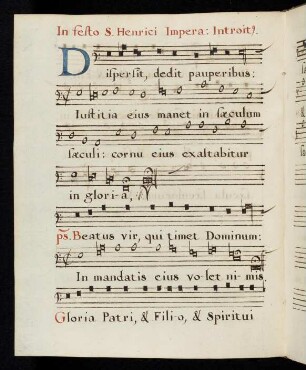 In festo S. Henrici Impera: Introit9.
Dispersit, dedit pauperibus:
Iustitia eius manet in sæculum
sæculi: cornu eius exaltabitur
in glori-a,
ps. Beatus vir, qui timet Dominum:
In mandatis eius vo-let ni-mis
Gloria Patri, & Fili-o, & Spiritui